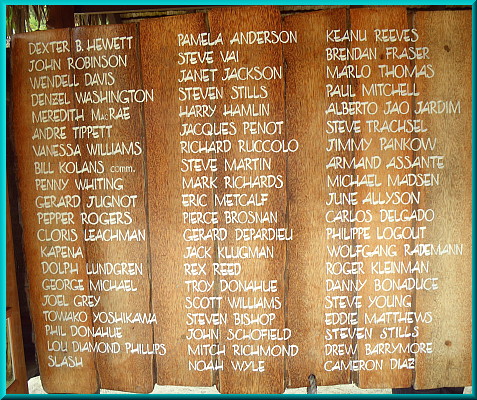 DEXTER B. HEWETT
JOHN ROBINSON
WENDELL DAVIS
DENZEL WASHINGTON
MEREDITH MacRAE
ANDRE TIPPETT
VANESSA WILLIAMS
BILL KOLANS comm.
PENNY WHITING
GERARD JUGNOT
PEPPER ROGERS
CLORIS LEACHMAN
KAPENA
DOLPH LUNDGREN
GEORGE MICHAEL
JOEL GREY
TOWAKO YOSHIKAWA
PHIL DONAHUE
LOU DIAMOND PHILLIPS
SLASH
PAMELA ANDERSON
STEVE VAI
JANET JACKSON
STEVEN STILLS
HARRY HAMLIN
JACQUES PENOT
RICHARD RUCCOLO
STEVE MARTIN
MARK RICHARDS
ERIC METCALF
PIERCE BROSNAN
GERARD DEPARDIEU
JACK KLUGMAN
REX REED
TROY DONAHUE
SCOTT WILLIAMS
STEVEN BISHOP
JOHN SCHOFIELD
MITCH RICHMOND
NOAH WYLE
KEANU REEVES
BRENDAN FRASER
MARLO THOMAS
PAUL MITCHELL
ALBERTO JAO JARDIM
STEVE TRACHSEL
JIMMY PANKOW
ARMAND ASSANTE
MICHAEL MADSEN
JUNE ALLYSON
CARLOS DELGADO
PHILIPPE LOGOUT
WOLFGANG RADEMANN
ROGER KLEINMAN
DANNY BONADUCE
STEVE YOUNG
EDDIE MATTHEWS
STEVEN STILLS
DREW BARRYMORE
CAMERON DIAZ